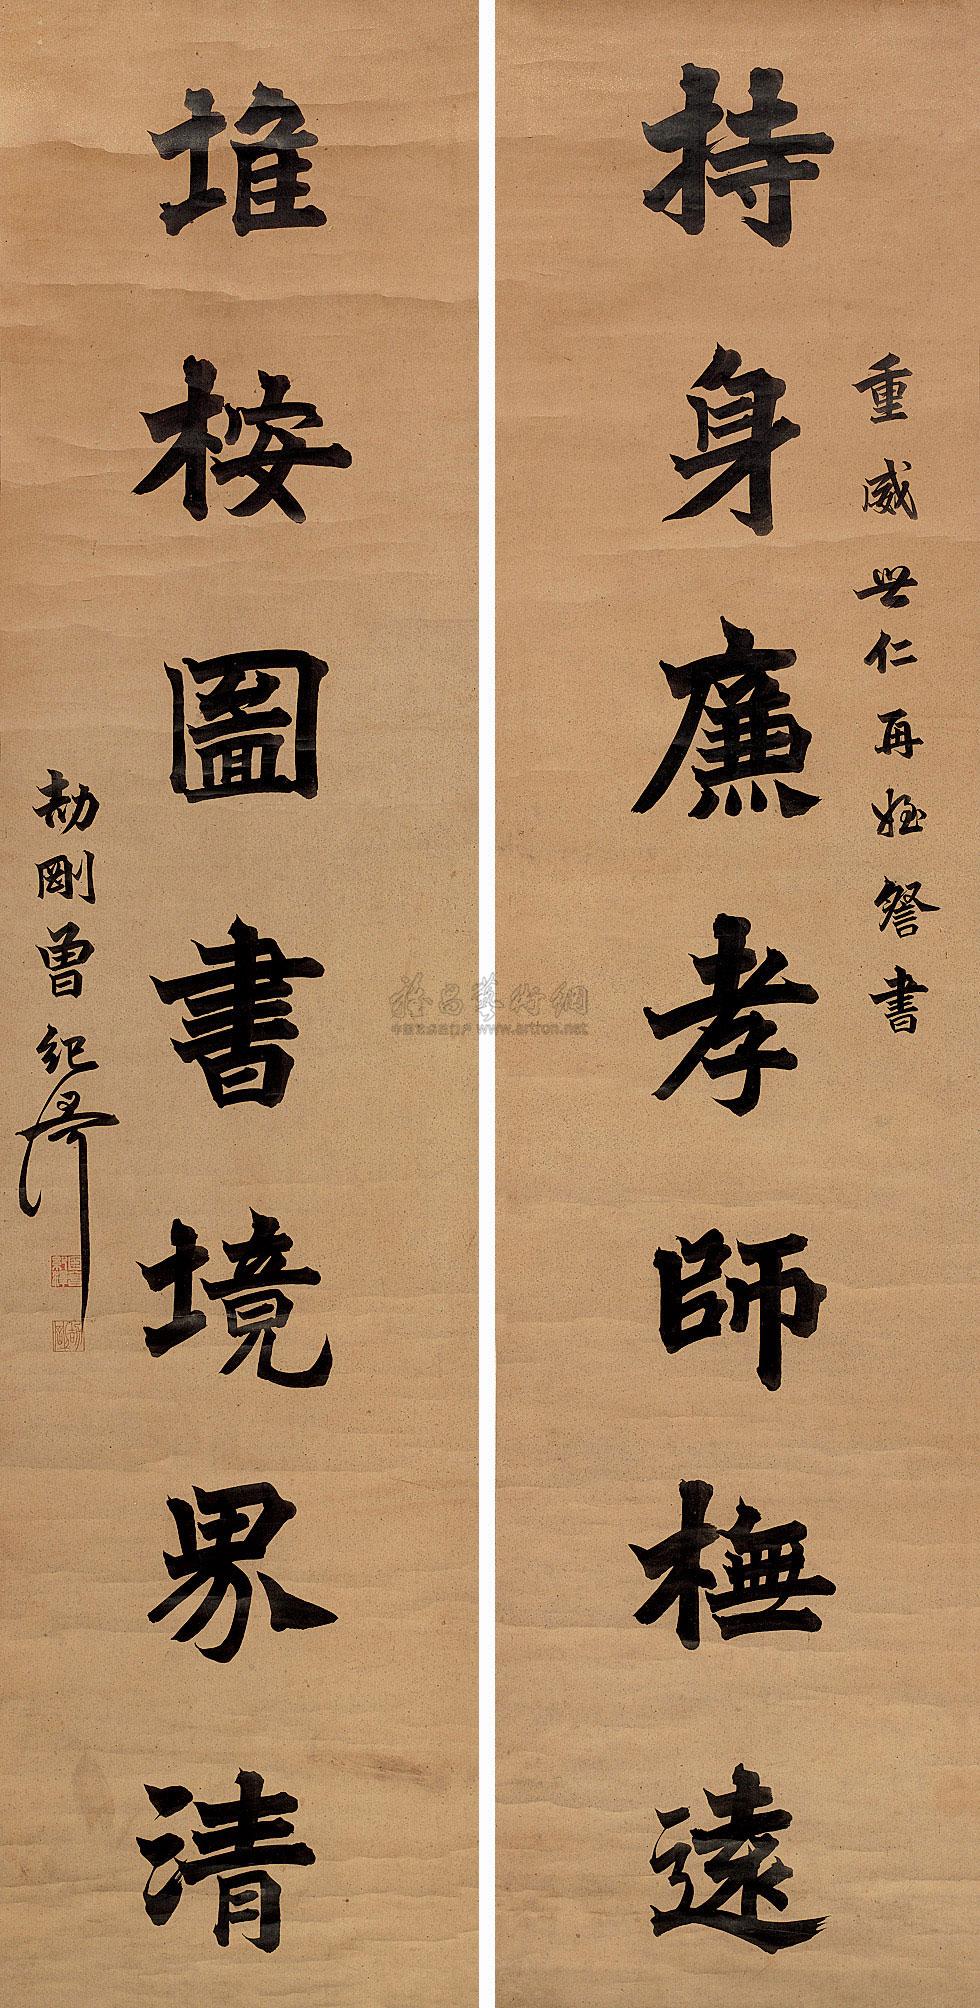 持身廉孝師橅遠
重威世仁再姪詧書
堆桉圖書境界清
劼剛曾紀澤
雅昌藝術網
www.artron.net